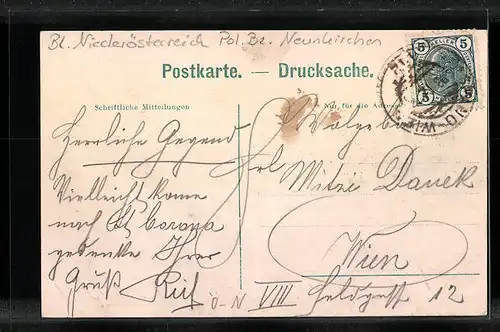 Bl. Niederösterreich Pol. Bz. Neunkirchen
Postkarte. — Drucksache.
Schriftliche Mitteilungen
Nur für die Adresse
5 HELLER 5
5 5
WIEN
Herrliche Gegend
Vielleicht kome
nach St. Corona
gedenke Ihrer
Gruß
Wolgeb
Frl
Mitzi Danek
Wien
VIII Feldgasse 12
Ö-N